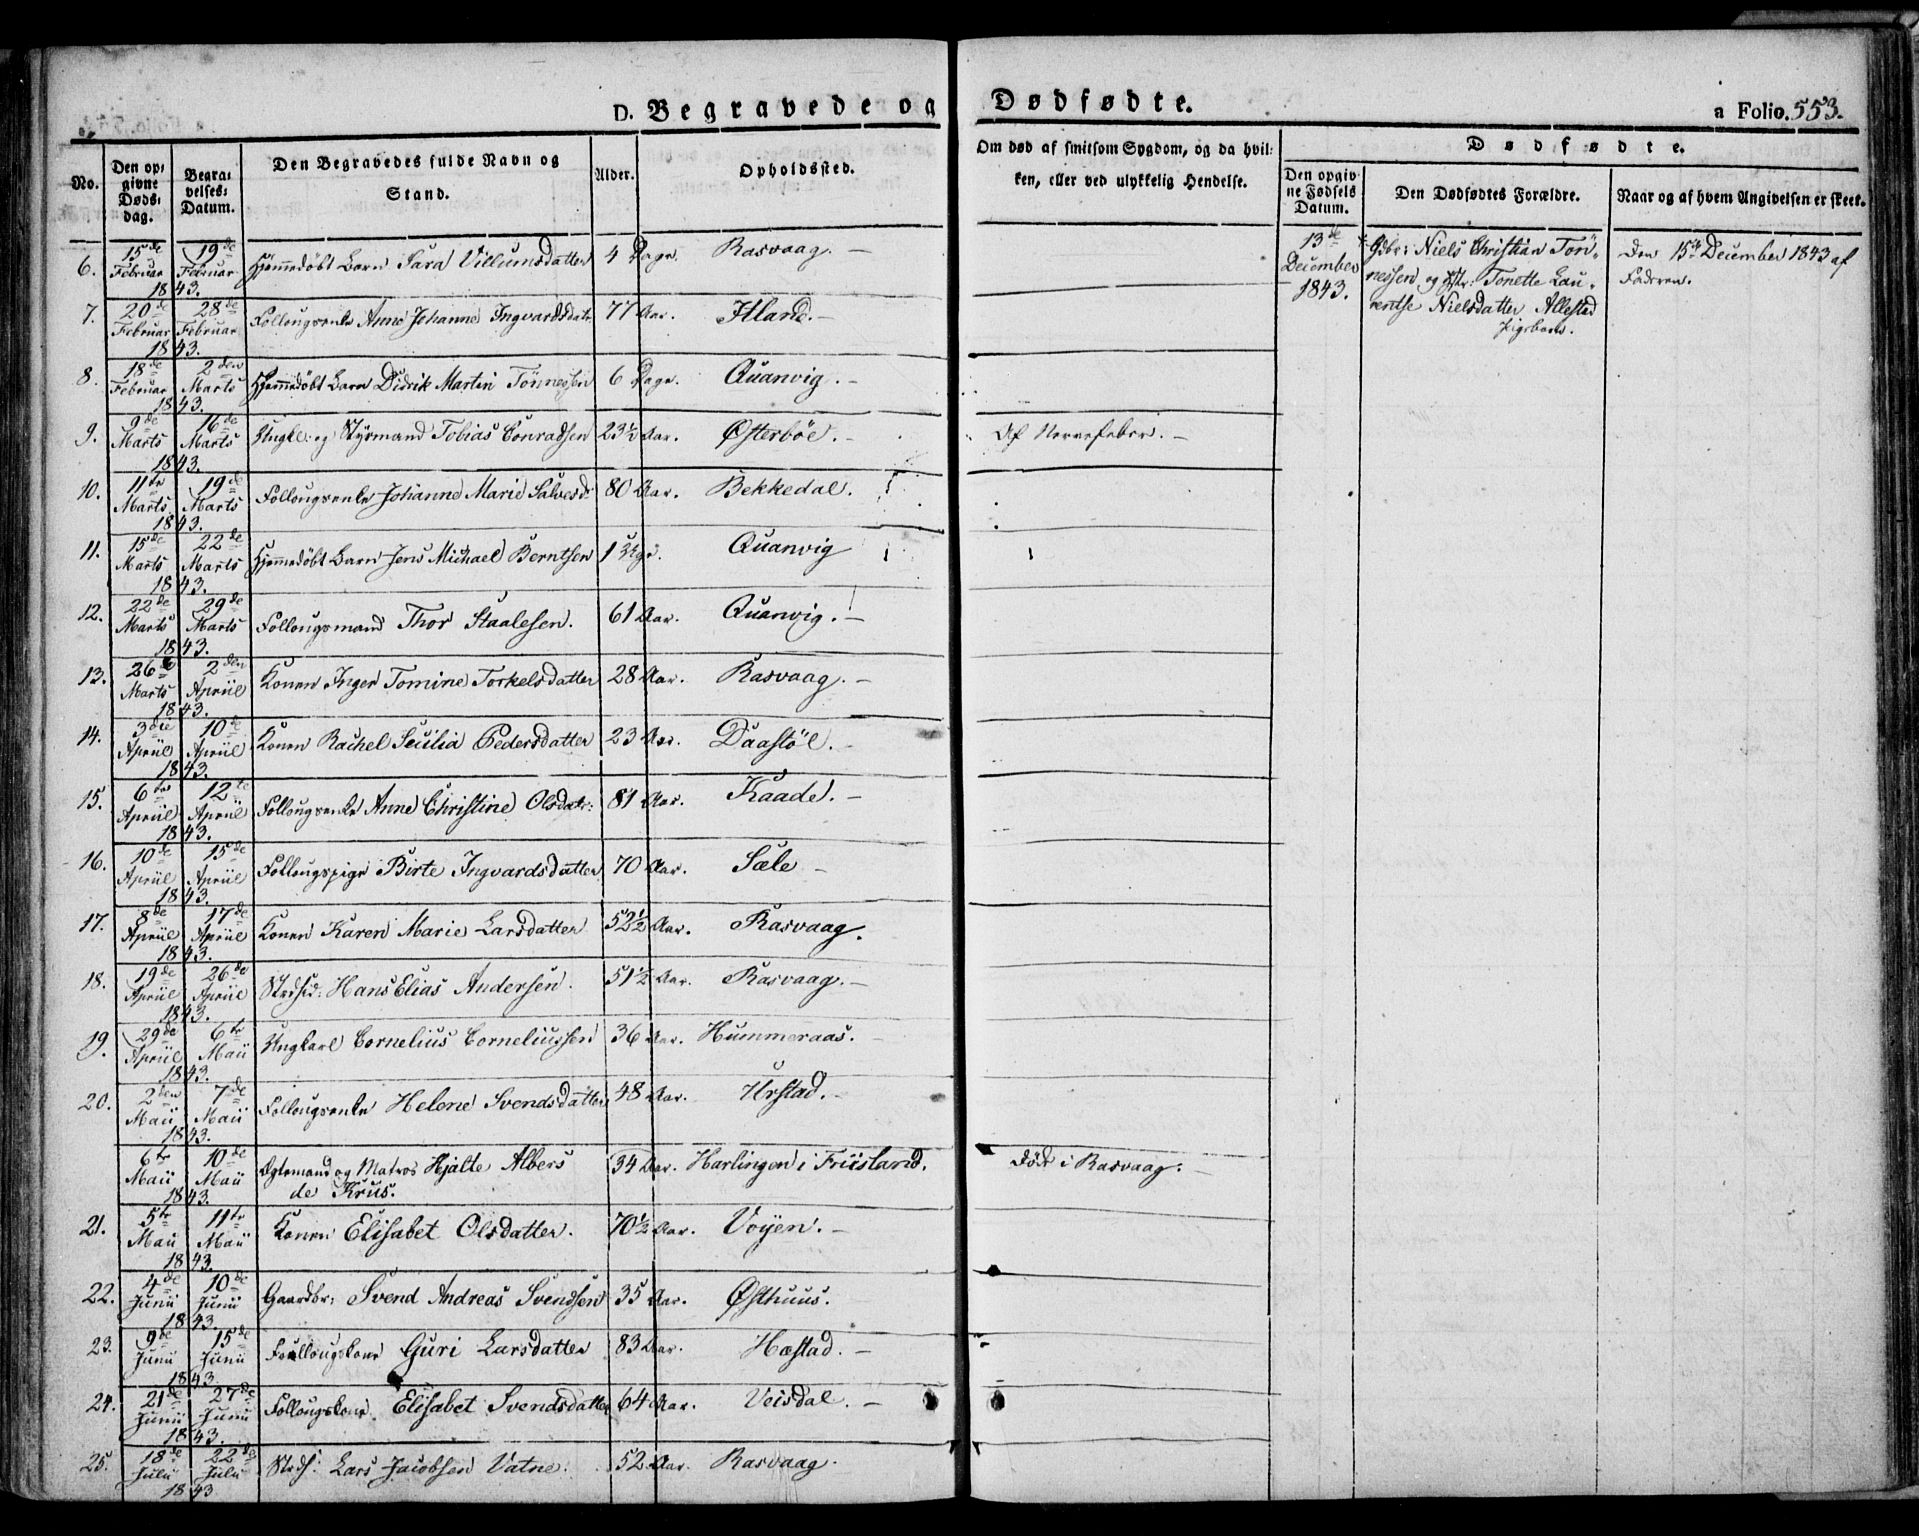 D. Begravede og Dødfødte. a Folio. 553.
No.
Den opgivne Døds-dag.
Begravelses-Datum.
Den Begravedes fulde Navn og Stand.
Alder.
Opholdssted.
Om død af smitsom Sygdom, og da hvilken, eller ved ulykkelig Hendelse.
Dødfødte.
Den opgivne Fødsels Datum.
Den Dødfødtes Forældre.
Naar og af hvem Angivelsen er skeet.
6. 15de Februar 19de Februar 1843. Hjemmedøbt Barn Sara Villumsdatter 4 Dage. Rasvaag.
7. 20de Februar 28de Februar 1843. Follougsenke Anne Johanne Ingvardsdatr 77 Aar. Itland.
8. 18de Februar 2den Marts 1843. Hjemmedøbt Barn Didrik Martin Tönnessen 6 Dage. Quanvig.
9. 9de Marts 16de Marts 1843. Ungk: og Styrmand Tobias Conradsen 23½ Aar. Østerböe. Af Nervefeber.
10. 11te Marts 19de Marts 1843. Follougsenke Johanne Marie Salvesd 80 Aar. Bekkedal.
11. 15de Marts 22de Marts 1843. Hjemmedöbt Barn Jens Michael Berntsen 1 Quanvig
12. 22de Marts 29de Marts 1843. Follougsmand Thor Staalesen. 61 Aar. Quanvig.
13. 26de Marts 2den Apriil 1843. Konen Inger Tomine Torkelsdatter 28 Aar. Rasvaag.
14. 3die Apriil 10de Apriil 1843. Konen Rachel Secilia Pedersdatter 23 Aar. Daastöl.
15. 6te Apriil 12te Apriil 1843. Follougsenke Anne Christine Olsdatr: 81 Aar. Kaade.
16. 10de Apriil 15de Apriil 1843. Follougspige Birte Ingvardsdatter 70 Aar. Sæle
17. 8de Apriil 17de Apriil 1843. Konen Karen Marie Larsdatter 52½ Aar. Rasvaag.
18. 19de Apriil 26de Apriil 1843. Strdsid: Hans Elias Andersen. 51½ Aar. Rasvaag.
19. 29de Apriil 6te Maii 1843. Ungkarl Cornelius Corneliussen 36 Aar. Hummeraas.
20. 2den Maii 7de Maii 1843. Follougsenke Helene Svendsdatter 48 Aar. Urstad.
6te Maii 10de Maii 1843. Egtemand og Matros Hjalte Albers de Krus. 34 Aar. Harlingen i Friisland. Död i Rasvaag.
21. 5te Maii 11te Maii 1843. Konen Elisabet Olsdatter. 70½ Aar. Voyen.
22. 4de Junii 10de Junii 1843. Gaardbr: Svend Andreas Svendsen 35 Aar. Østhuus.
23. 9de Junii 15de Junii 1843. Follougskone Guri Larsdatter 83 Aar. Hæstad.
24. 21de Junii 27de Junii 1843. Follougskone Elisabet Svendsdatter 64 Aar. Veisdal.
25. 18de Julii 22de Julii 1843 Strds: Lars Jacobsen Vatne. 52 Aar. Rasvaag.
13de December 1843. Gdbr: Niels Christian Tönnessen og Hstr: Tonette Laurentse Nielsdatter Allestad Pigebarn.
Den 15de December 1843 af Faderen.